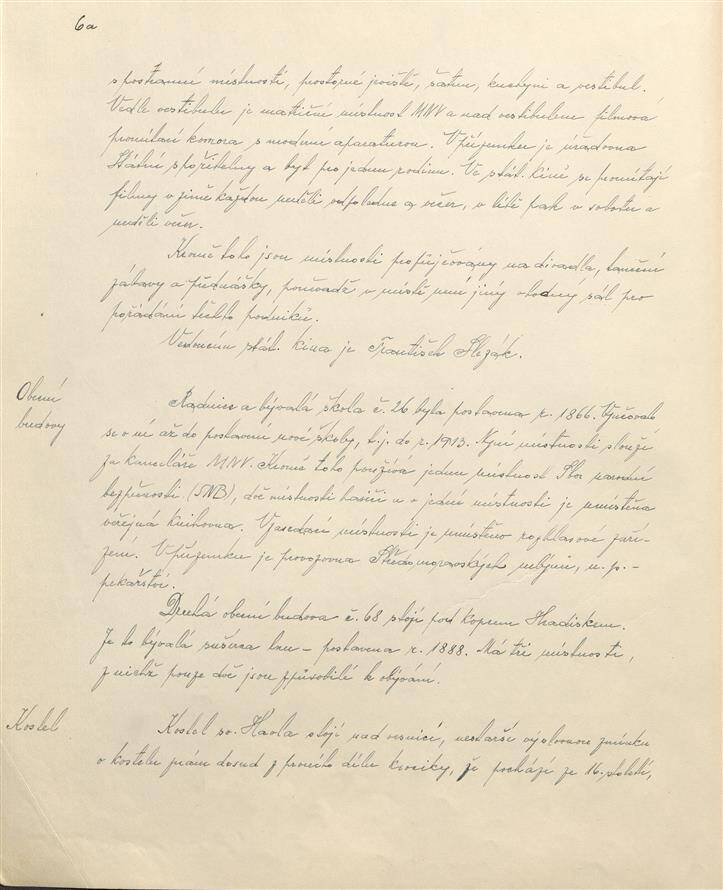 6a
s postranní místností, prostorné jeviště, šatnu, kuchyni a vestibul.
Vedle vestibulu je matiční místnost MNV a nad vestibulem filmová
promítací komora s moderní aparaturou. V přízemku je úřadovna
Státní spořitelny a byt pro jednu rodinu. Ve stát. kině se promítají
filmy v zimě každou neděli odpoledne a večer, v létě pak v sobotu a
neděli večer.
Kromě toho jsou místnosti propůjčovány na divadla, taneční
zábavy a přednášky, poněvadž v místě není jiný vhodný sál pro
pořádání těchto podniků.
Vedoucím stát. kina je František Slezák.
Obecní
budovy
Radnice a bývalá škola č. 26 byla postavena r. 1866. Vyučovalo
se v ní až do postavení nové školy, t.j. do r. 1913. Nyní místnosti slouží
za kanceláře MNV. Kromě toho používá jednu místnost Sbor národní
bezpečnosti (SNB), dvě místnosti hasiči a v jedné místnosti je umístěna
veřejná knihovna. V zasedací místnosti je umístěno rozhlasové zaří-
zení. V přízemku je provozovna Středomoravských mlýnů, n. p. -
pekařství.
Druhá obecní budova č. 68 stojí pod kopcem Hradiskem.
Je to bývalá sušírna lnu - postavena r. 1888. Má tři místnosti,
z nichž pouze dvě jsou způsobilé k obývání.
Kostel
Kostel sv. Havla stojí nad vesnicí, nestarší výslovnou zmínku
o kostele znám dosud z prvního dílu kroniky, že pochází ze 16. století,